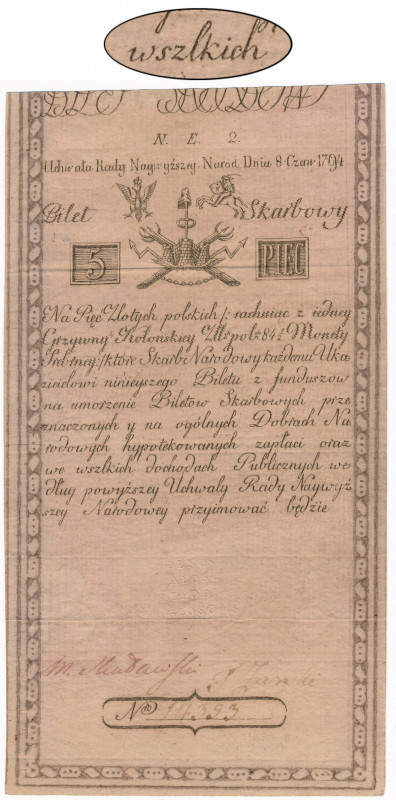 wszlkich
N. E. 2.
Uchwała Rady Naywyższey Narod. Dnia 8 Czaw 1794
Bilet Skarbowy
5 PIĘĆ
Na Pięć Złotych polskich /: rachuiąc z iedney
Grzywny Kolonskiey Zł: pols: 84½ Monety
Srebrney:/ które Skarb Narodowy każdemu Oka
zicielowi ninieyszego Biletu z funduszow
na umorzenie Biletow Skarbowych prze
znaczonych y na ogólnych Dobrach Na
rodowych hypotekowanych zapłaci oraz
we wszlkich dochodach Publicznych we
dług powyższey Uchwały Rady Naywyż
szey Narodowey przyimować będzie
No 14.393